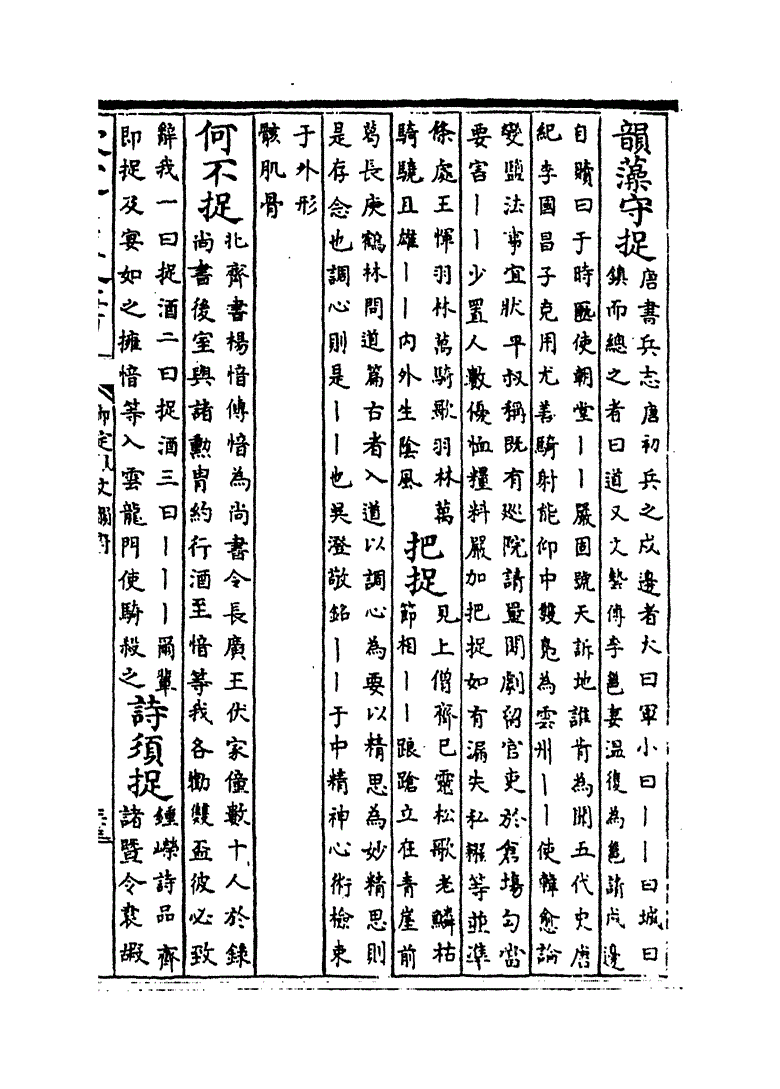 韻藻守捉
唐書兵志唐初兵之戍邊者大曰軍小曰丨丨曰城曰
鎮而總之者曰道又文藝傳李邕妻溫復為邕訴戍邊
自贖曰于時匭使朝堂丨丨嚴固號天訴地誰肯為聞五代史唐
紀李國昌子克用尤善騎射能仰中雙鳧為雲州丨丨使韓愈論
變鹽法事宜狀平叔稱既有巡院請量閒劇留官吏於倉塲勾當
要害丨丨少置人數優恤糧料嚴加把捉如有漏失私糶等並準
條處王惲羽林萬騎歌羽林萬
騎驍且雄丨丨內外生陰風
把捉
見上僧齊已靈松歌老鱗枯
節相丨丨踉蹌立在青崖前
葛長庚鶴林問道篇古者入道以調心為要以精思為妙精思則
是存念也調心則是丨丨也吳澄敬銘丨丨于中精神心術檢束
于外形
骸肌骨
何不捉
北齊書楊愔傳愔為尚書令長廣王伏家僮數十人於錄
尚書後室與諸勲胄約行酒至愔等我各勸雙盃彼必致
辭我一曰捉酒二曰捉酒三曰丨丨丨爾輩
即捉及宴如之擁愔等入雲龍門使騎殺之
詩須捉
鍾嶸詩品齊
諸暨令袁嘏